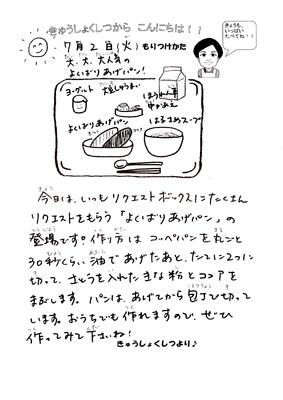 きゅうしょくしつから こんにちは!!
きょうも、
いっぱい
たべてね!!
7月2日(火) もりつけかた
大、大、大人気の
よくばりあげパン!
ヨーグルト
大豆しゅうまい
ほうれん草
中かあえ
よくばりあげパン
はるさめスープ
今日は、いつもリクエストボックスにたくさん
リクエストをもらう「よくばりあげパン」の
登場です!作り方は コッペパンを丸ごと
30秒くらい油であげたあと、たてに2つに
切って、さとうを入れたきな粉とココアを
まぶします。パンは、あげてから包丁で切って
います。おうちでも作れますので、ぜひ
作ってみて下さいね!
きゅうしょくしつより♪